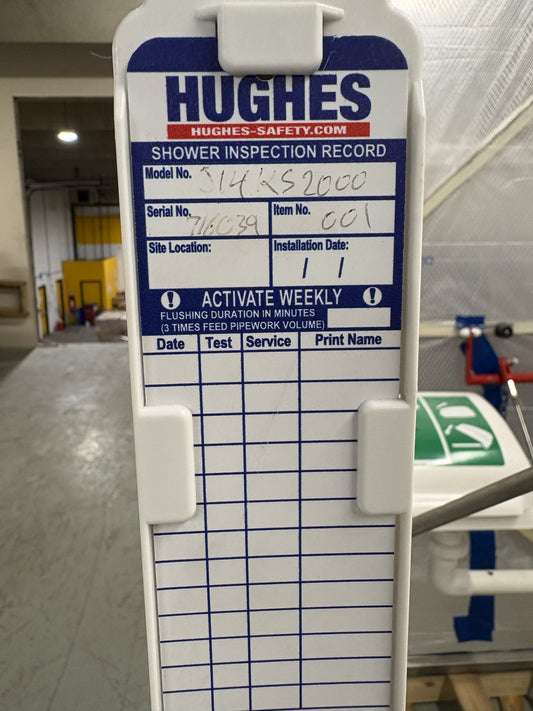 HUGHES
HUGHES-SAFETY.COM
SHOWER INSPECTION RECORD
Model No. J14KS2000
Serial No. 716039 Item No. 001
Site Location: Installation Date: / /
! ACTIVATE WEEKLY !
FLUSHING DURATION IN MINUTES
(3 TIMES FEED PIPEWORK VOLUME)
Date Test Service Print Name